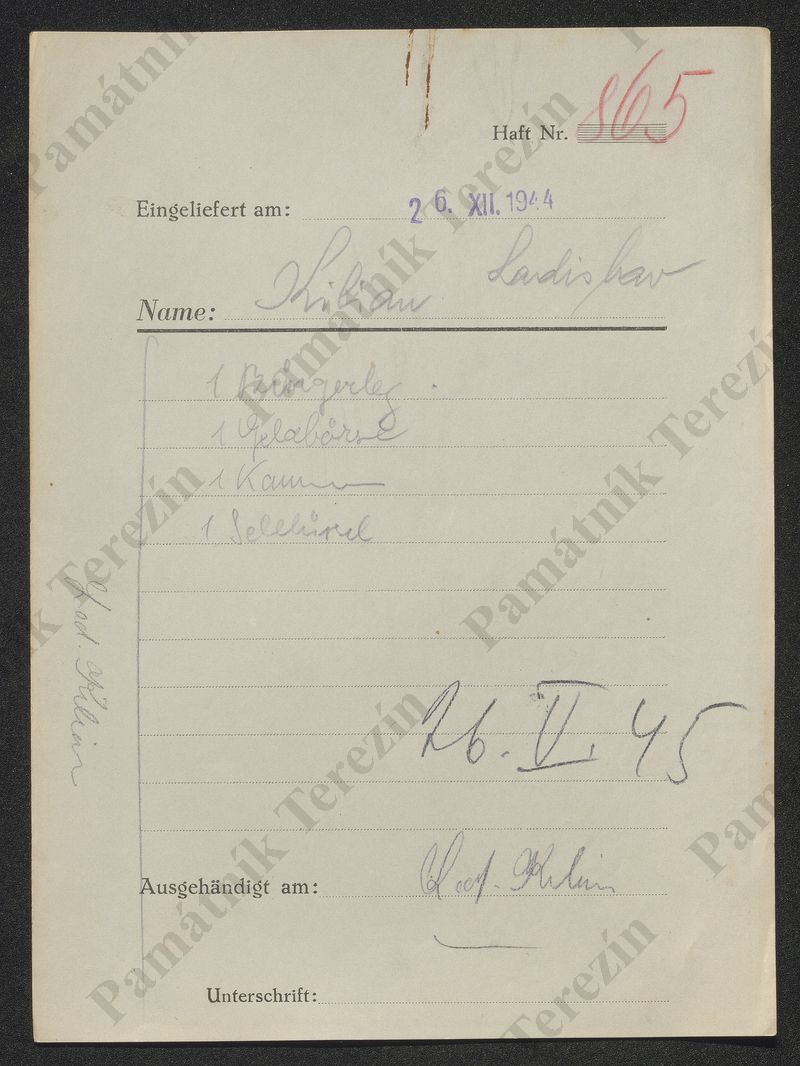 Haft Nr. 865
Eingeliefert am: 26. XII. 1944
Name: Kilian Ladislav
1
1 Geldbörse
1 Kamm
1 Schlüssel
Lad. Kilian
26. V. 45
Ausgehändigt am: Lad. Kilian
Unterschrift:
Památník Terezín